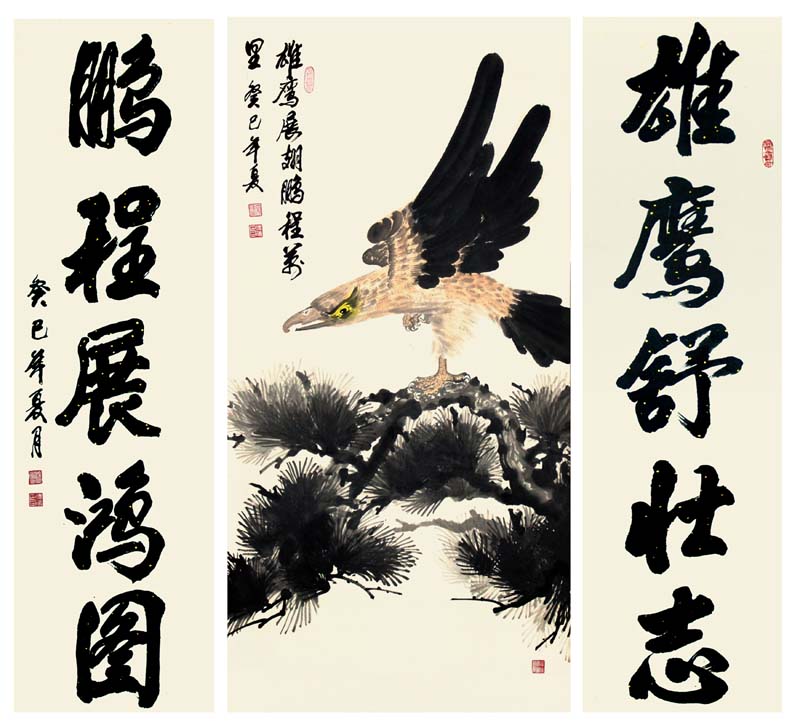 雄鹰舒壮志
雄鹰展翅鹏程万
里 癸巳年夏
鹏程展鸿图
癸巳年夏月